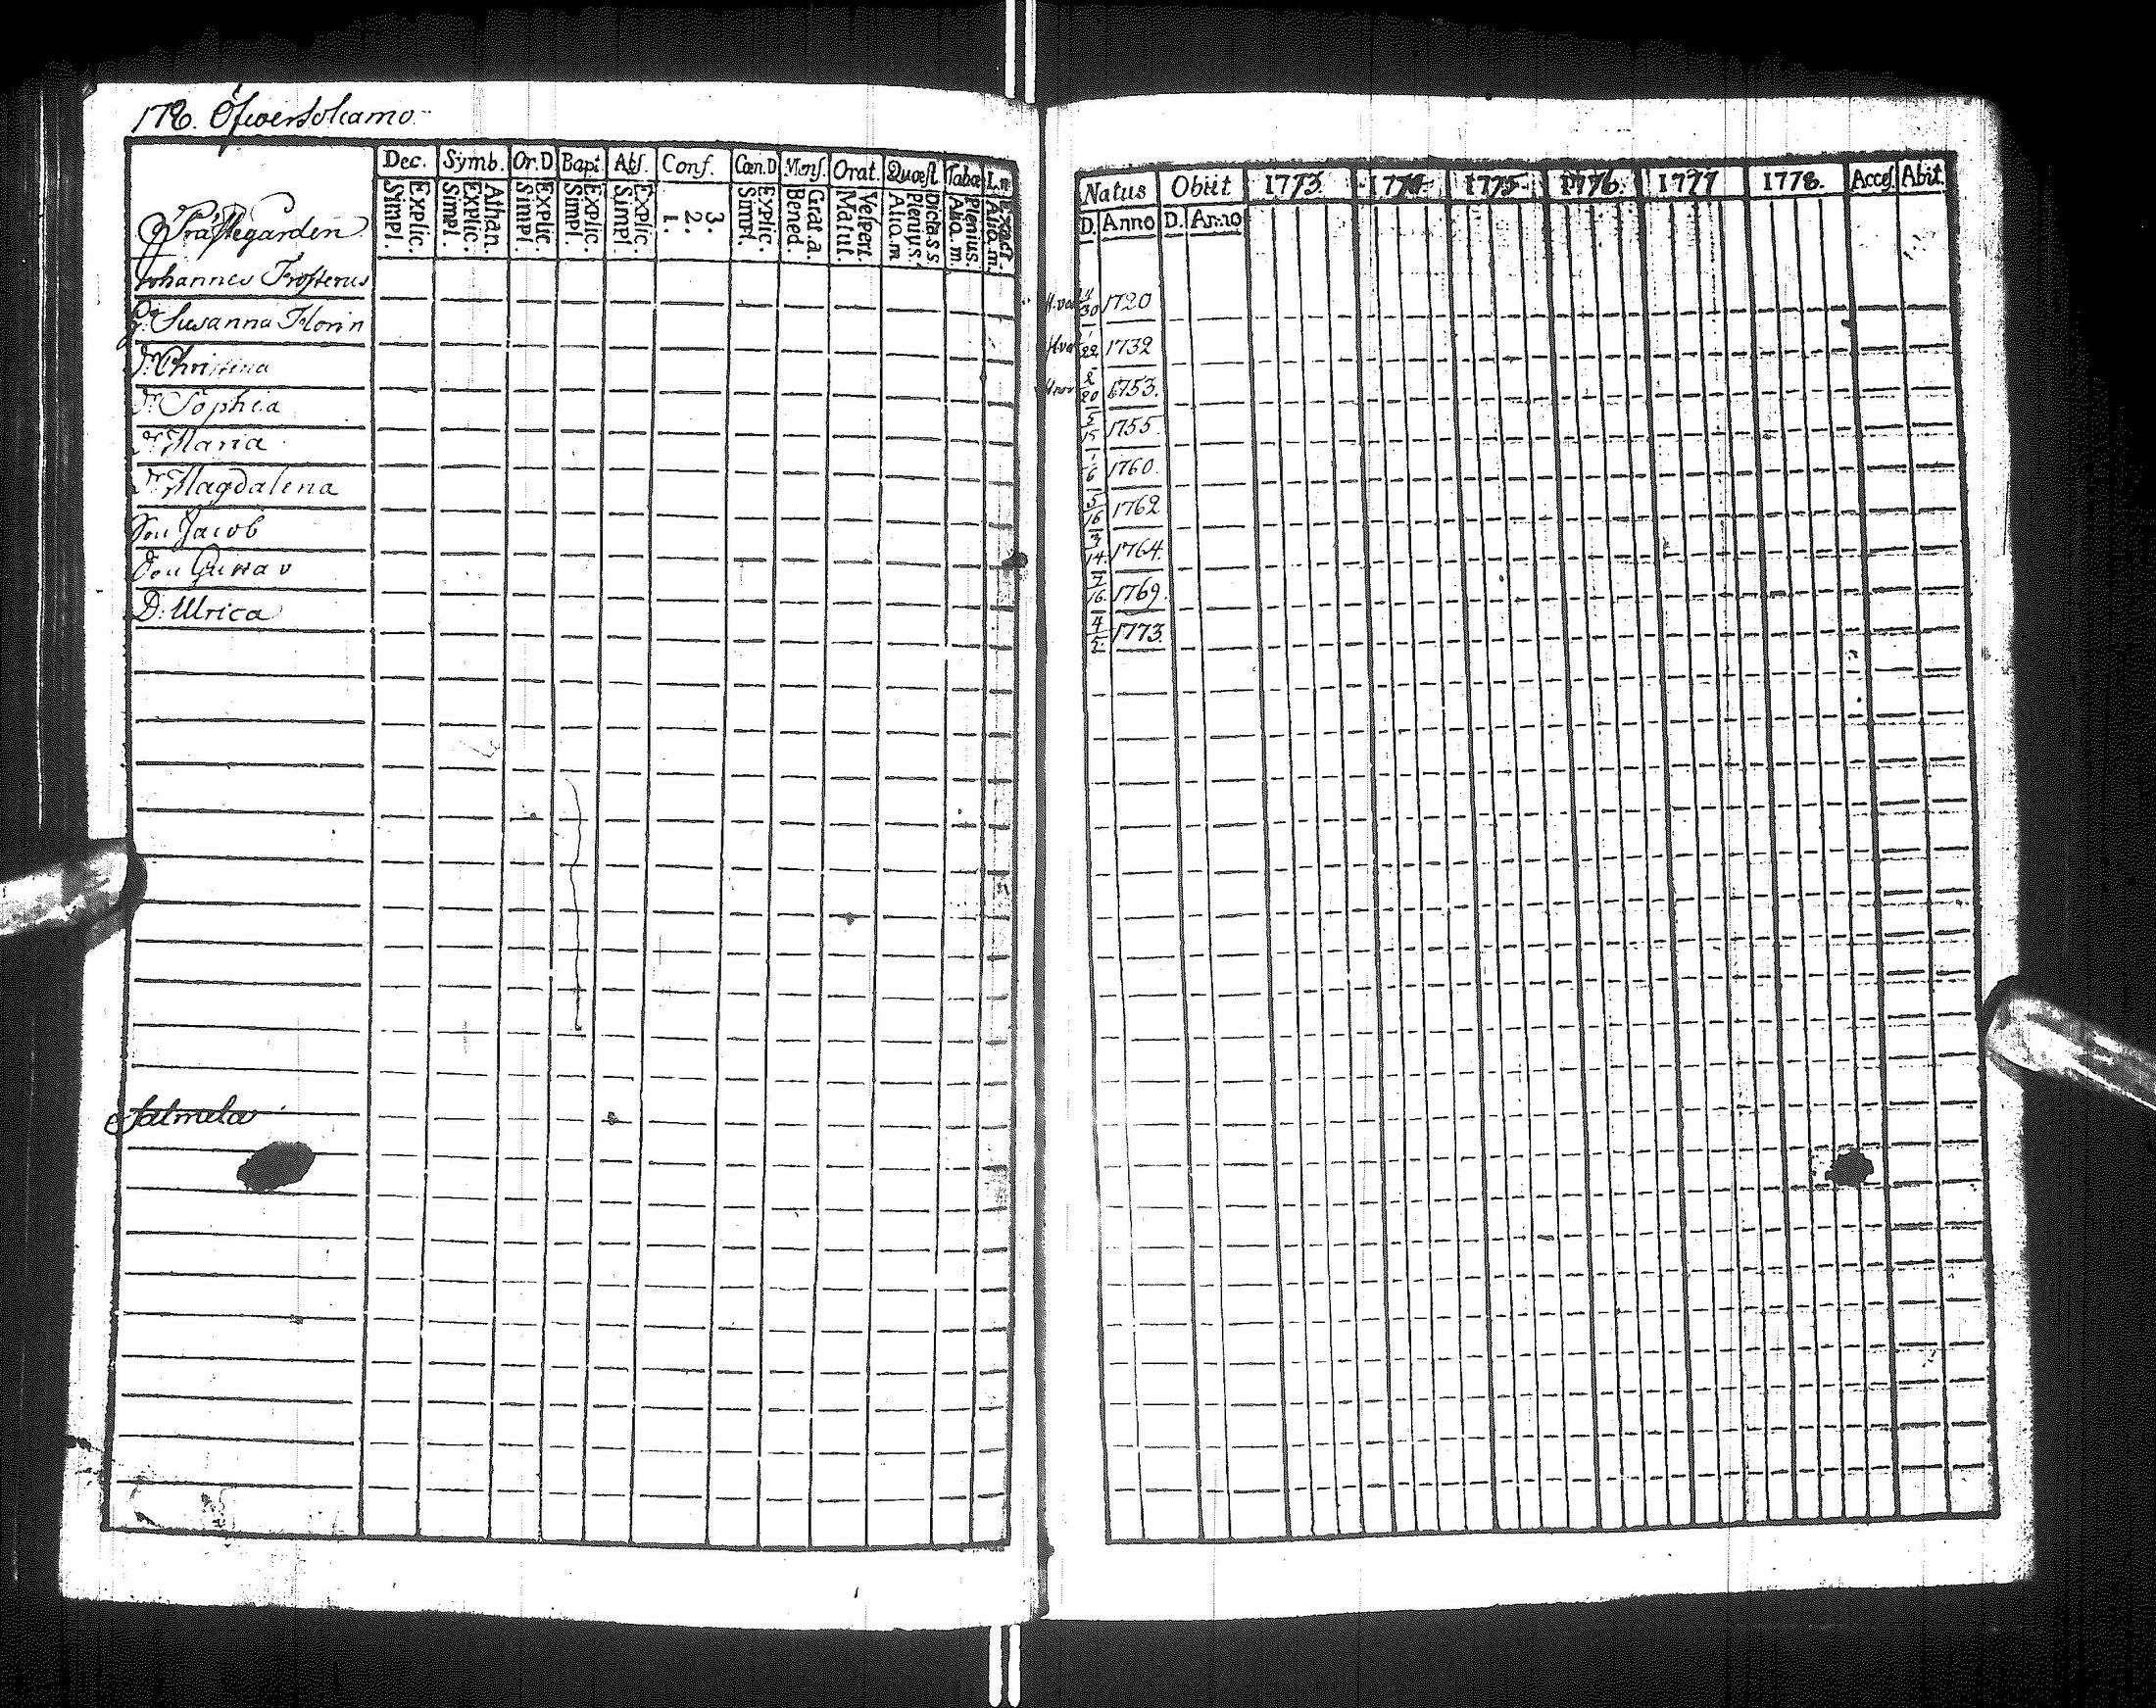 178. Öfwersokamo
Dec. Symb. Or.D Bapt Abs. Conf. Cœn.D Mens. Orat. Quæst Tabæ
Simpl. Explic. Simpl. Explic. Athan. Simpl. Explic. Simpl. Explic. Simpl. Explic. 1. 2. 3. Simpl. Explic. Bened. Grat.a. Matut. Vespert. Alio.m Plenius. Dicta.s.s. Alio.m. Plenius. Alio.m.
Prästegården
Johannes Frosterus
Susanna Florin
Dr Christina
Dr Sophia
Dr Maria
Dr Magdalena
Son Jacob
Son Gustav
D: Ulrica
Salmela
Natus Obiit 1773 1774 1775 1776. 1777 1778. Acces. Abit
D. Anno D. Anno
11/30 1720
1/22 1732
2/20 1753.
5/15 1755
1/6 1760.
5/16 1762
3/14 1764
7/16 1769.
4/5 1773